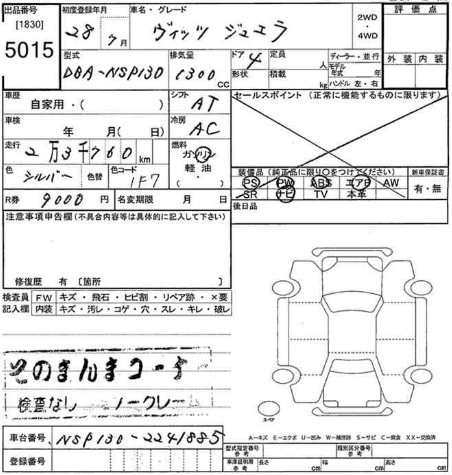 出品番号 初度登録年月 車名・グレード 評価点
[1830] 28年7月 ヴィッツ ジュエラ 2WD・4WD
5015 外装 内装
型式 排気量 ドア 定員 ディーラー・並行
DBA-NSP130 1300cc 4 人 モデル年式 年
形状 積載 kg ハンドル 左・右
車歴 シフト セールスポイント(正常に機能するものに限ります)
自家用・( ) AT
車検 冷房
年 月( 日) AC
走行 燃料
2万3千760km ガソリン・軽油・
色 色替 色コード 装備品(純正品に限り○をつけてください) 新車保証書
シルバー 1F7 PS PW ABS エアB AW 有・無
R券 名変期限 月 日 SR ナビ TV 本革
9000円 後日品
注意事項申告欄(不具合内容等は具体的に記入して下さい)
修復歴 有〔箇所 〕
検査員記入欄 FW キズ・飛石・ヒビ割・リペア跡・×要
内装 キズ・汚レ・コゲ・穴・スレ・キレ・破レ
そのまんまコーナー
検査なし ノークレーム
スペア
A-キズ E-エクボ U-凹み W-補修跡 S-サビ C-腐食 XX-交換済
車台番号 NSP130-2241885 型式指定番号 参考 類別区分番号 参考
登録番号 車庫証明用 参考 長さ cm 幅 cm 高さ cm